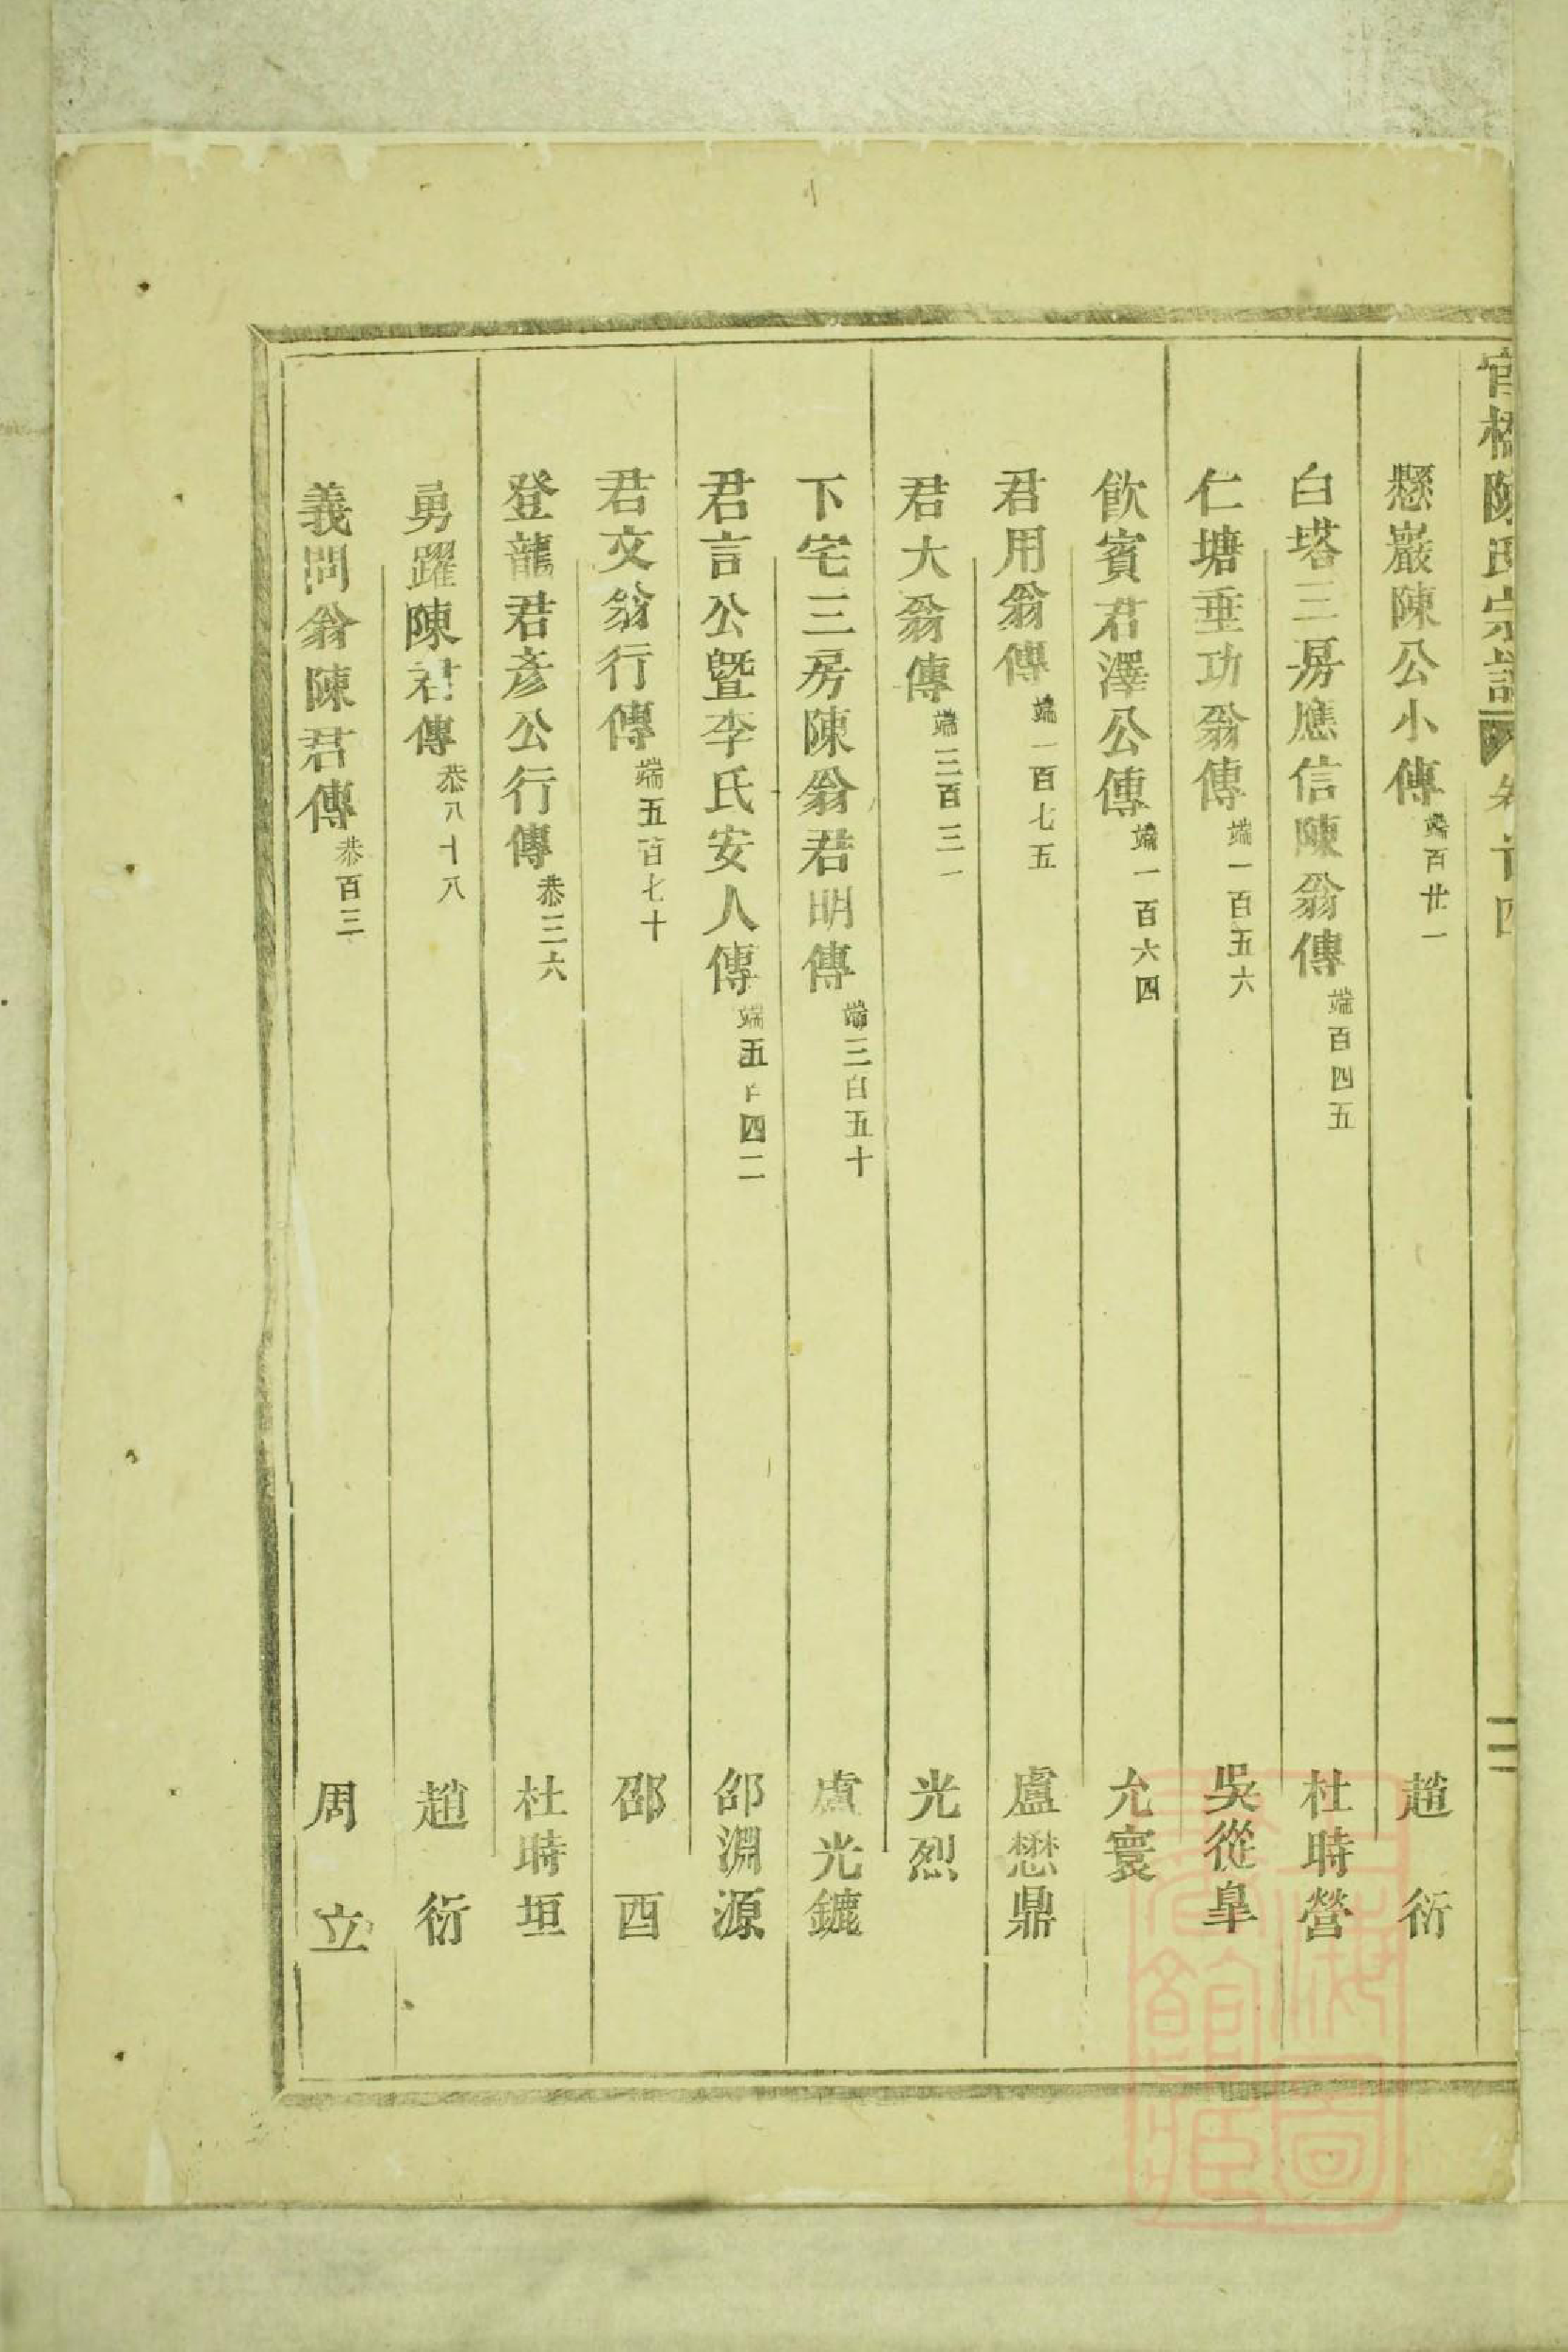 官橋陳氏宗譜 卷首四 二
懸巖陳公小傳 端百廿一 趙衍
白塔三房應信陳翁傳 端百四五 杜時營
仁塘垂功翁傳 端一百五六 吳從皐
飲賓君澤公傳 端一百六四 允寰
君用翁傳 端一百七五 盧懋鼎
君大翁傳 端三百三一 光烈
下宅三房陳翁君明傳 端三百五十 盧光鑣
君言公曁李氏安人傳 端五百四二 邵淵源
君文翁行傳 端五百七十 邵酉
登龍君彥公行傳 恭三六 杜時垣
勇躍陳君傳 恭八十八 趙衍
義問翁陳君傳 恭百三 周立